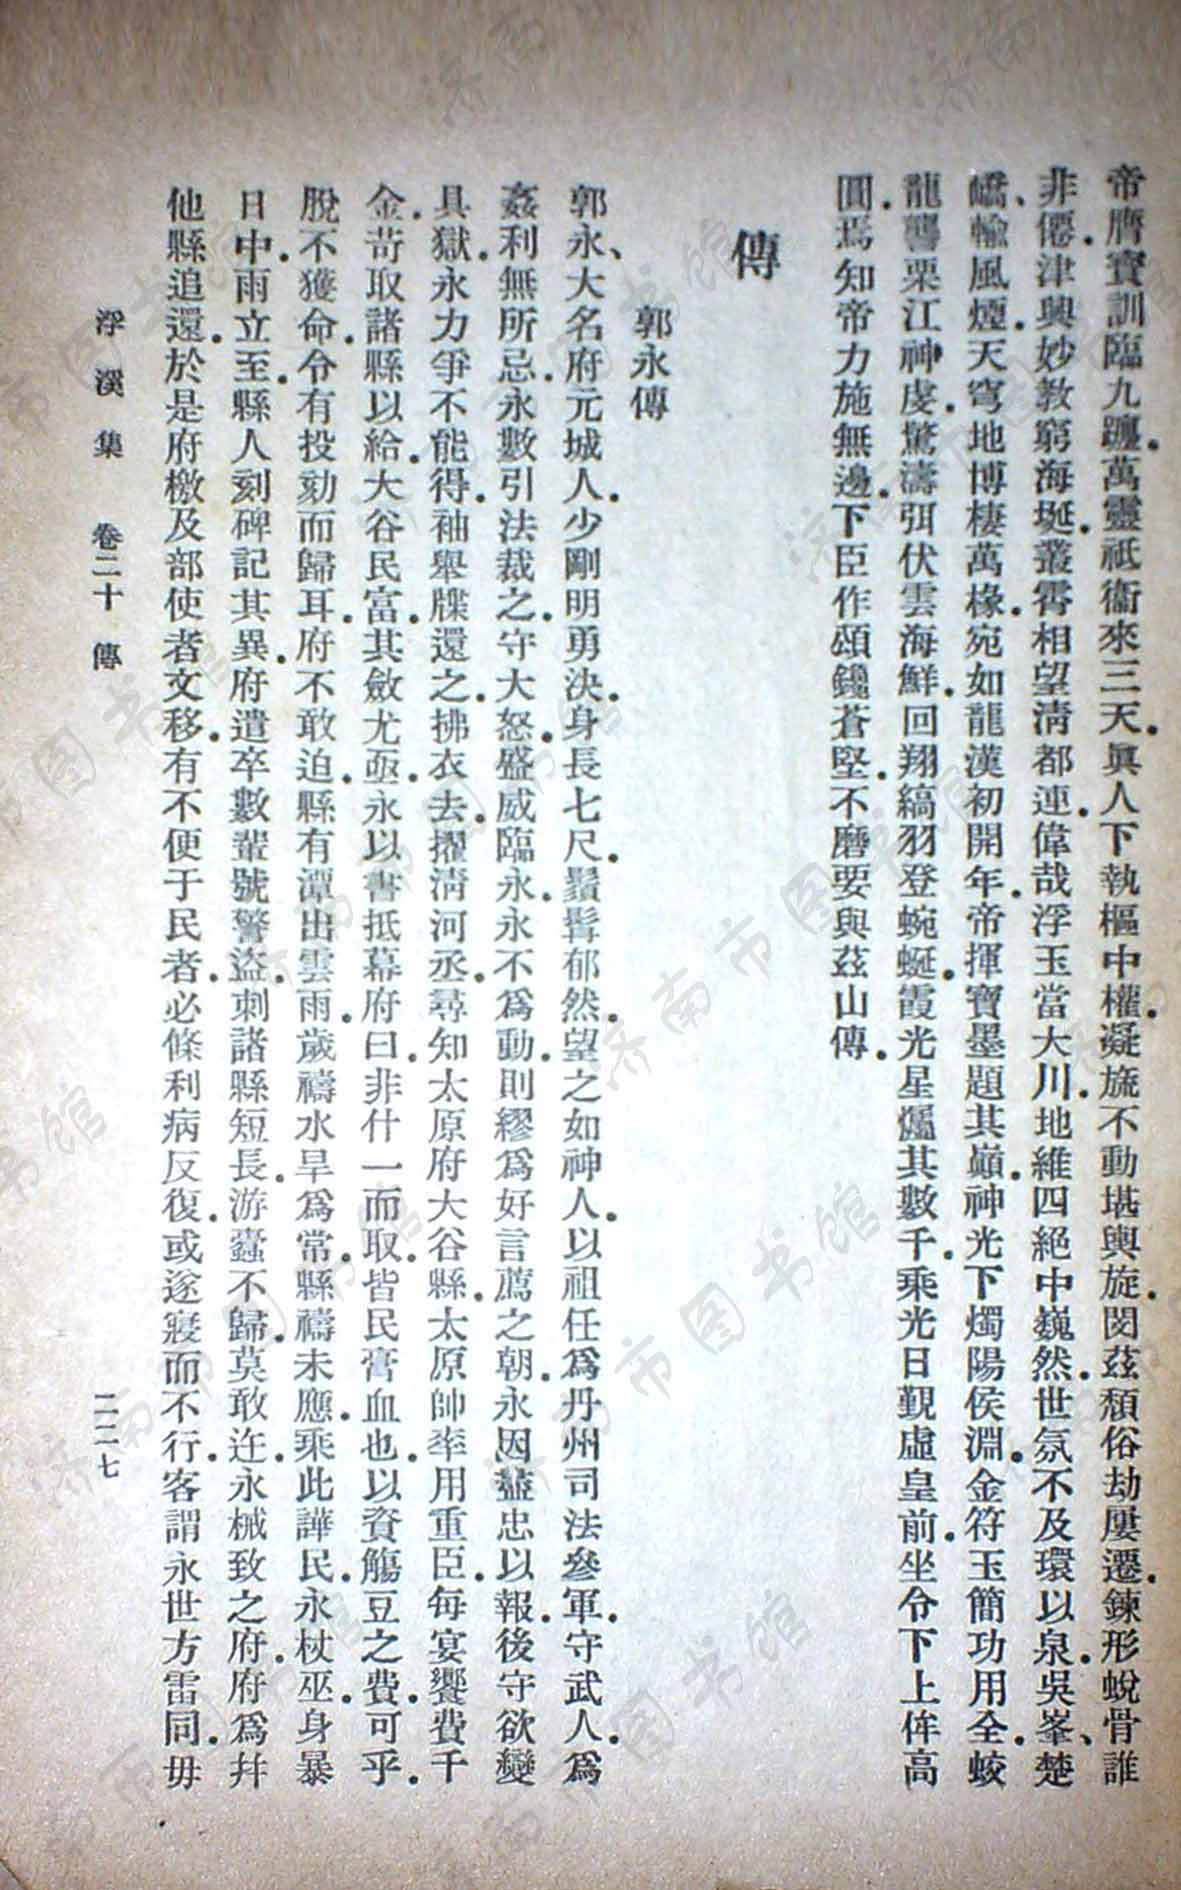 帝膺寶訓臨九躔.萬靈祗衞來三天.眞人下執樞中權.凝旒不動堪輿旋.閔茲頹俗劫屢遷.鍊形蛻骨誰
非僊.津興妙教窮海埏.叢霄相望淸都連.偉哉浮玉當大川.地維四絕中巍然.世氛不及環以泉.吳峯、楚
嶠、輸風煙.天穹地博棲萬椽.宛如龍漢初開年.帝揮寶墨題其巓.神光下燭陽侯淵.金符玉簡功用全.蛟
龍讋栗江神虔.驚濤弭伏雲海鮮.回翔縞羽登蜿蜒.霞光星爥其數千.乘光日覲虛皇前.坐令下上侔高
圓.焉知帝力施無邊.下臣作頌鑱蒼堅.不磨要與茲山傳.
傳
郭永傳
郭永、大名府元城人.少剛明勇決.身長七尺.鬚髯郁然.望之如神人.以祖任爲丹州司法參軍.守武人.爲
姦利無所忌.永數引法裁之.守大怒.盛威臨永.永不爲動.則繆爲好言薦之朝.永因盡忠以報.後守欲變
具獄.永力爭不能得.袖舉牒還之.拂衣去.擢淸河丞.尋知太原府大谷縣.太原帥率用重臣.每宴饗費千
金.苛取諸縣以給.大谷民富.其斂尤亟.永以書抵幕府曰.非什一而取.皆民膏血也.以資觴豆之費.可乎.
脫不獲命.令有投劾而歸耳.府不敢迫.縣有潭出雲雨.歲禱水旱爲常.縣禱未應.乘此譁民.永杖巫.身暴
日中.雨立至.縣人刻碑記其異.府遣卒數輩號警盜.刺諸縣短長.游蠹不歸.莫敢迕.永械致之府.府爲幷
他縣追還.於是府檄及部使者文移.有不便于民者.必條利病反復.或遂寢而不行.客謂永世方雷同.毋
浮溪集 卷二十 傳
二二七